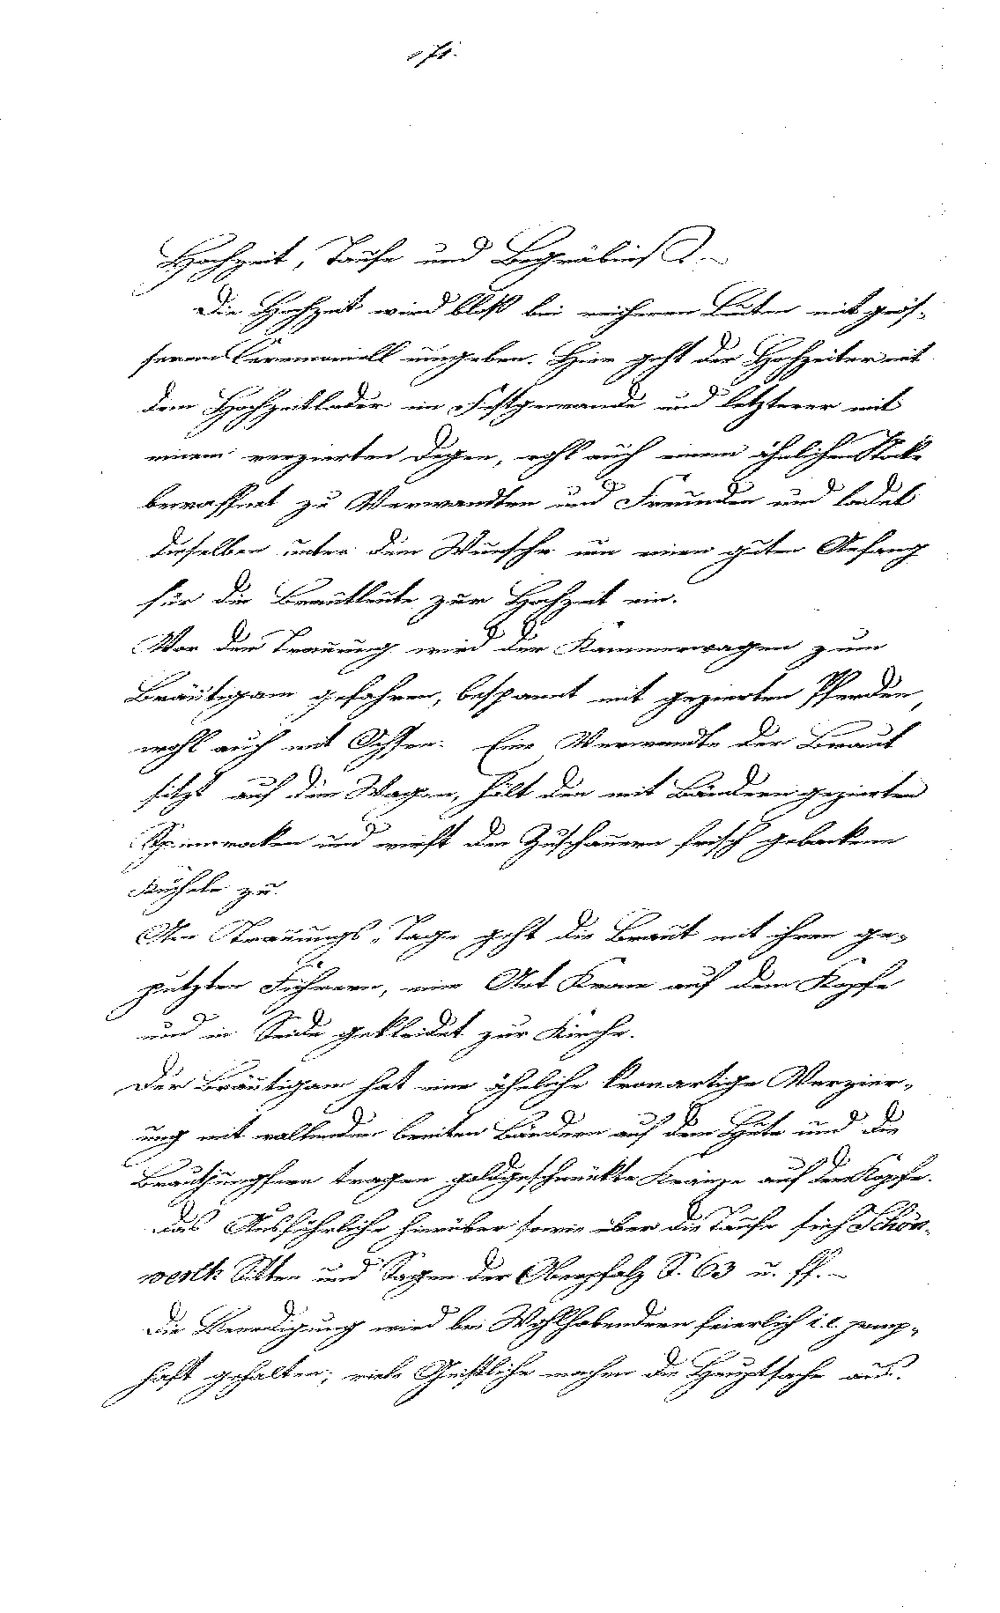 Hochzeit, Taufe und Begräbniß.
Die Hochzeit wird bloß bei reicheren Leuten mit größ-
serem Ceremoniell umgeben. Hier geht der Hochzeiter mit
dem Hochzeitlader im Festgewande und letzterer mit
einem verzierten Degen, wohl auch einem ähnlichen Stock
bewaffnet zu Verwandten und Freunden und ladet
dieselben unter dem Wunsche um einen guten Anfang
für die Brautleute zur Hochzeit ein.
Vor der Trauung wird der Kammerwagen zum
Bräutigam gefahren, bespannt mit gezierten Pferden,
wohl auch mit Ochsen. Eine Verwandte der Braut
sitzt auf dem Wagen, hält den mit Bändern gezierten
Spinnrocken und wirft den Zuschauern frisch gebackene
Kücheln zu.
Am Trauungs-Tage geht die Braut mit ihren ge-
putzten Führern, eine Art Krone auf dem Kopfe
und in Seide gekleidet zur Kirche.
Der Bräutigam hat eine ähnliche kronartige Verzier-
ung mit wallenden breiten Bändern auf dem Hute und die
Brautjungfern tragen goldgeschmückte Kränze auf dem Kopfe.
Das Ausführliche hierüber sowie über die Taufe sieh Schön-
werth Sitten und Sagen der Oberpfalz S. 63 u. ff.
Die Beerdigung wird bei Wohlhabendern feierlich i.e. pomp-
haft gehalten; viele Geistliche machen die Hauptsache aus.